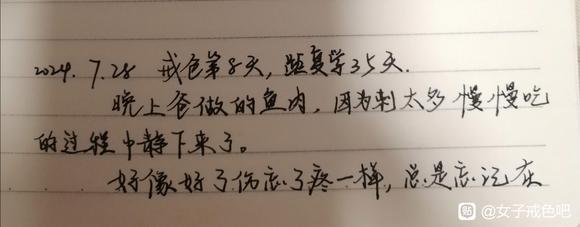 2024.7.28 戒色第8天，距复学35天.
晚上爸做的鱼肉，因为刺太多慢慢吃
的过程中静下来了。
好像好了伤忘了疼一样，总是忘记在
贴 @女子戒色吧